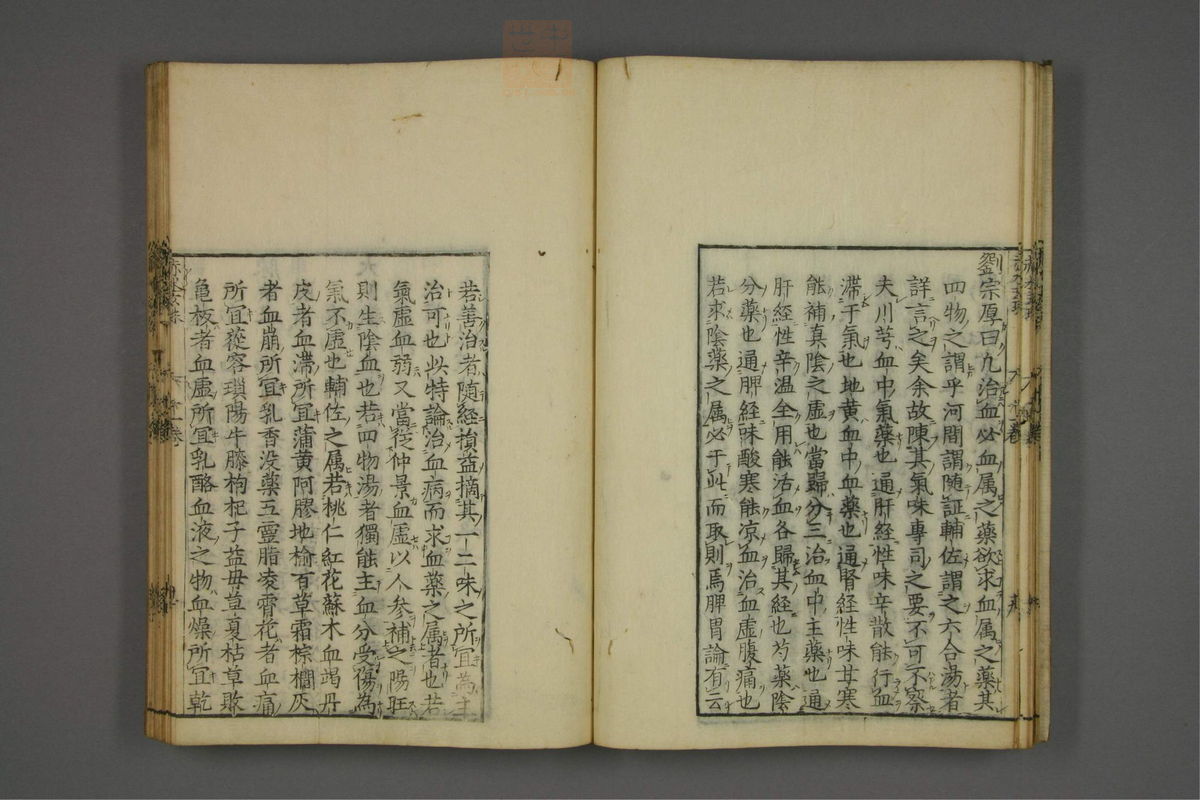 劉宗厚曰九治血必血属之藥欲求血属之藥其
四物之謂乎河間謂随証輔佐謂之六合湯者
詳言之矣余故陳其氣味專司之要不可不察
夫川芎血中氣藥也通肝経性味辛散能行血
滞于氣也地黄血中血藥也通腎経性味甘寒
能補真陰之虚也當歸分三治血中主藥也通
肝経性辛温全用能活血各歸其経也芍藥陰
分藥也通脾経味酸寒能凉血治血虚腹痛也
若求陰藥之属必于此而取則焉脾胃論有云
若善治者隨経損益摘其一二味之所宜為主
治可也此特論治血病而求血藥之属者也若
氣虚血弱又當従仲景血虚以人参補之陽旺
則生陰血也若四物湯者獨能主血分受傷為
氣不虚也輔佐之属若桃仁紅花蘇木血竭丹
皮者血滞所宜蒲黄阿膠地榆百草霜棕櫚灰
者血崩所宜乳香没藥五靈脂凌霄花者血痛
所宜蓯容瑣陽牛膝枸杞子益母草夏枯草敗
亀板者血虚所宜乳酪血液之物血燥所宜乾